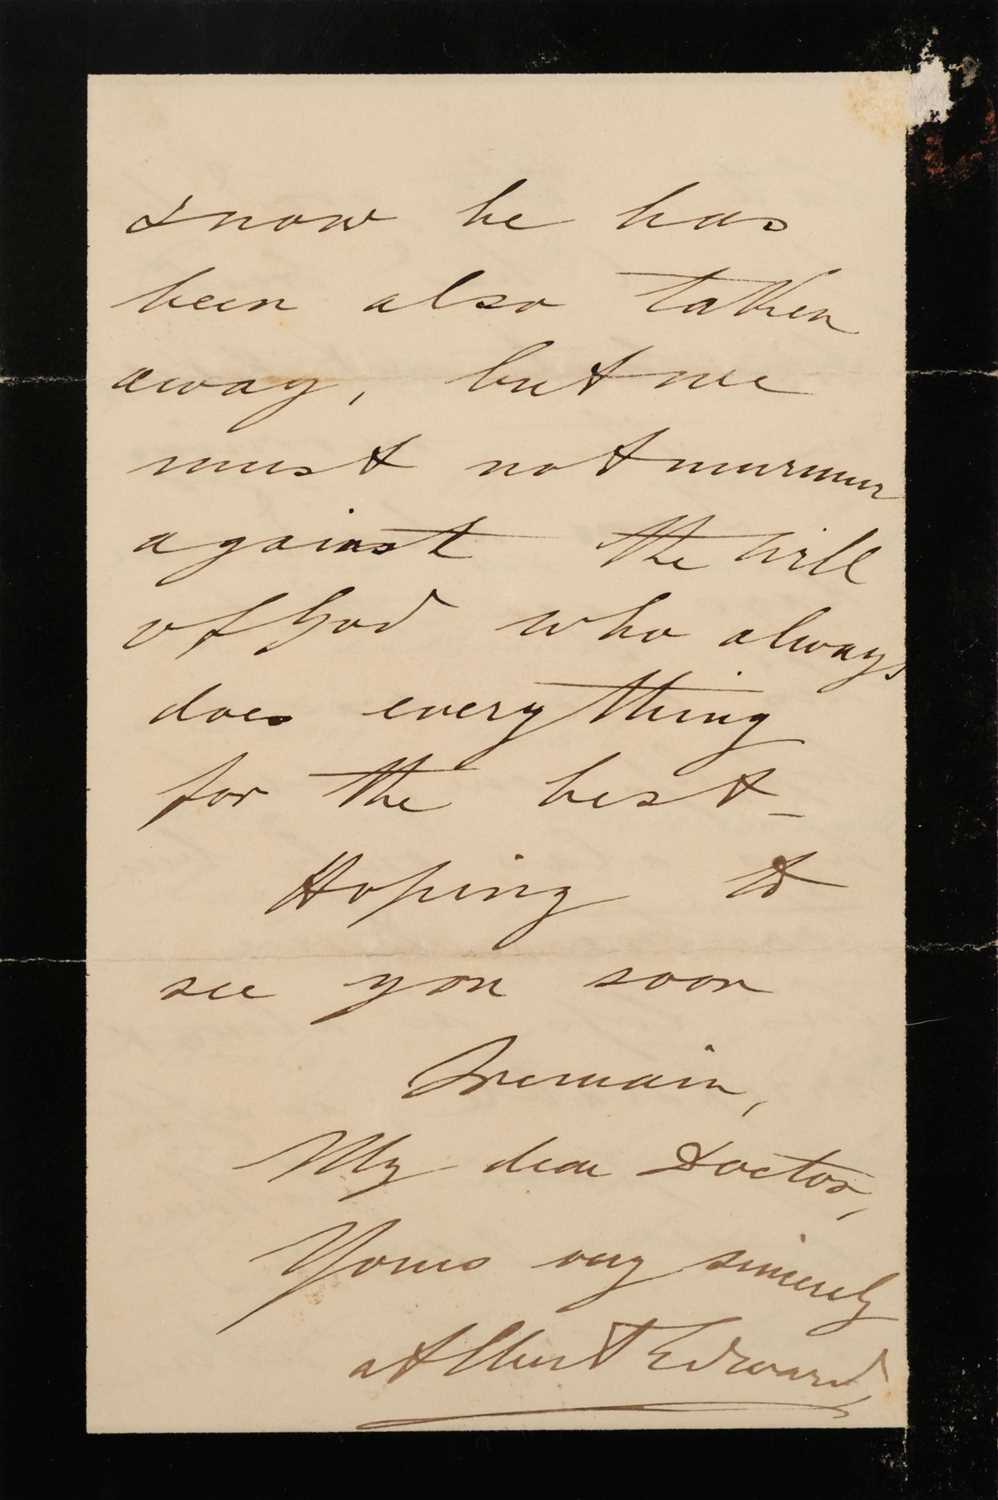 know he has
been also taken
away, but we
must not murmur
against the will
of God who always
does everything
for the best _
Hoping to
see you soon
I remain,
My dear Doctor,
Yours very sincerely
Albert Edward